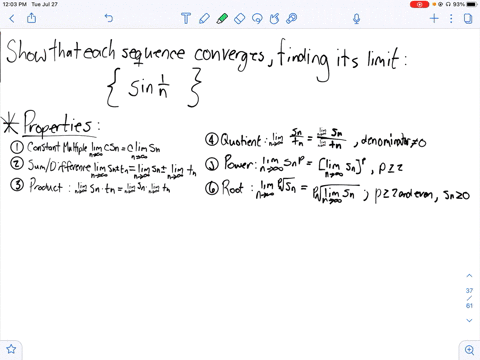 12:03 PM Tue Jul 27
93%
Show that each sequence converges, finding its limit:
{ sin 1/n }
* Properties:
① Constant Multiple lim n→∞ CSn = C lim n→∞ Sn
② Sum/Difference lim n→∞ Sn ± tn = lim n→∞ Sn ± lim n→∞ tn
③ Product : lim n→∞ Sn · tn = lim n→∞ Sn · lim n→∞ tn
④ Quotient : lim n→∞ Sn/tn = lim n→∞ Sn / lim n→∞ tn , denominator ≠ 0
⑤ Power : lim n→∞ Sn^p = [lim n→∞ Sn]^p , p ≥ 2
⑥ Root : lim n→∞ ᵖ√Sn = ᵖ√lim n→∞ Sn ; p ≥ 2 and even, Sn ≥ 0
37
/
61